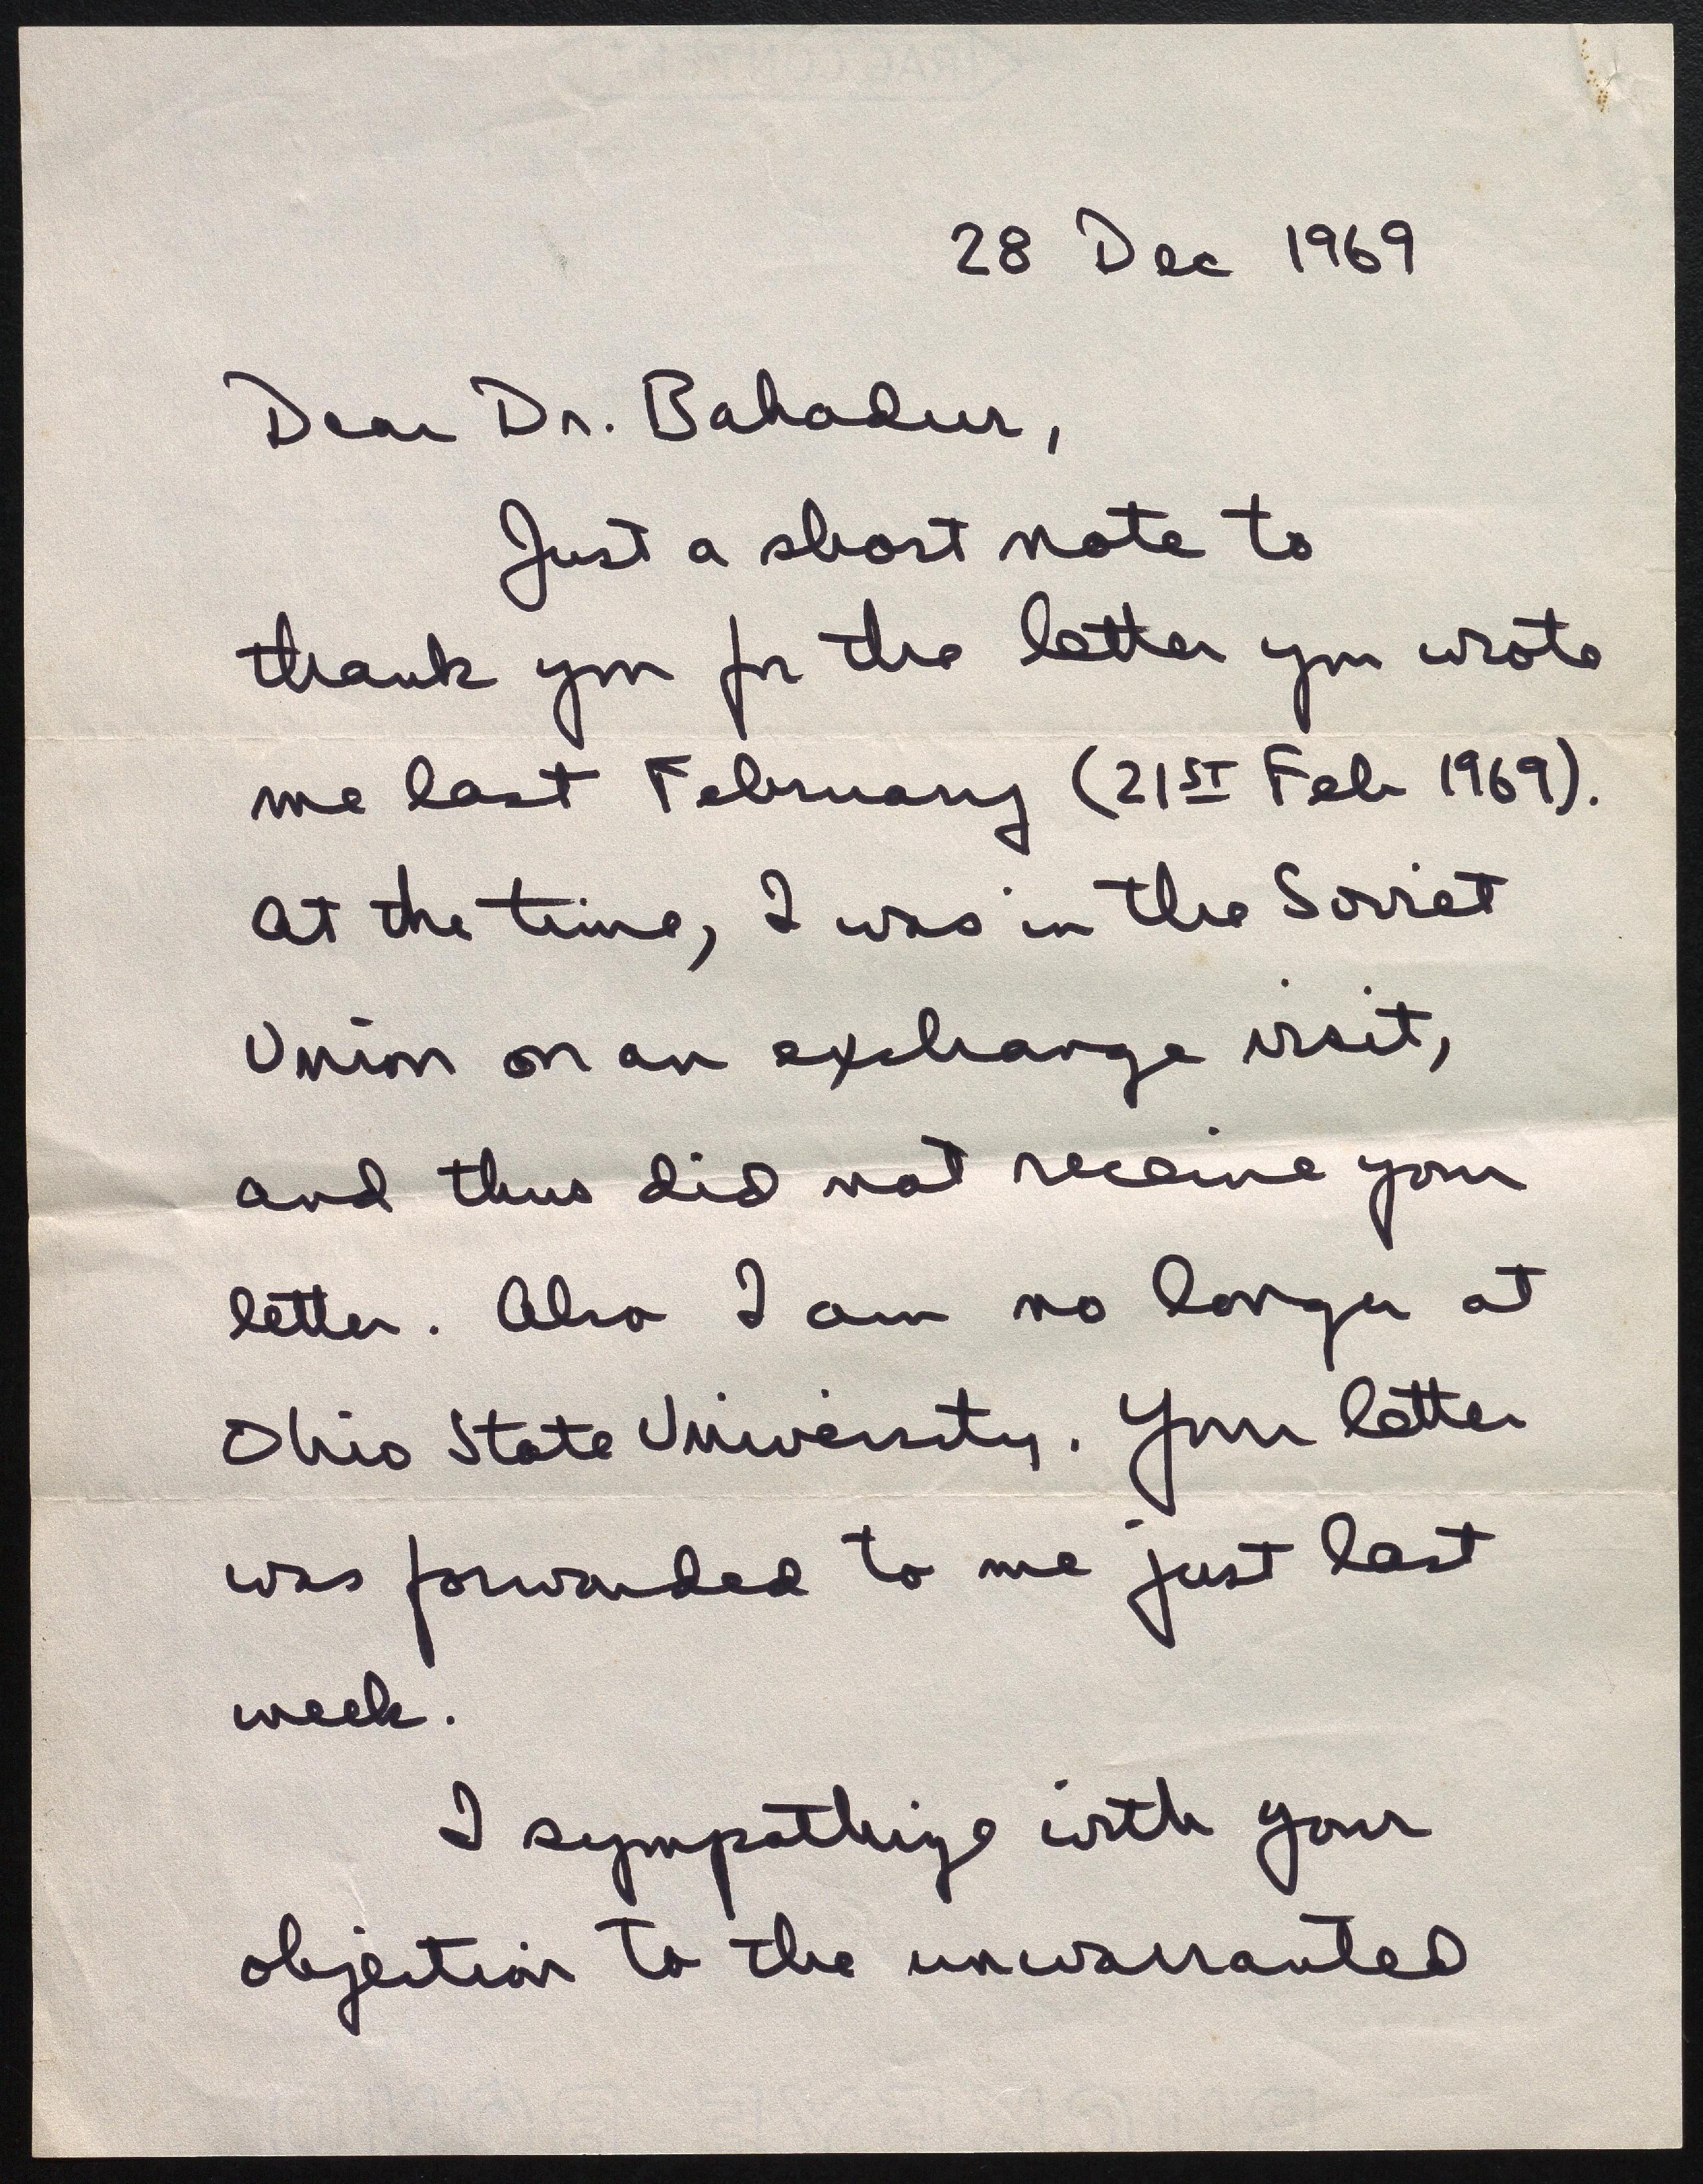 28 Dec 1969
Dear Dr. Bahadur,
Just a short note to
thank you for the letter you wrote
me last February (21ST Feb 1969).
At the time, I was in the Soviet
Union on an exchange visit,
and thus did not receive your
letter. Also I am no longer at
Ohio State University. Your letter
was forwarded to me just last
week.
I sympathize with your
objection to the unwarranted